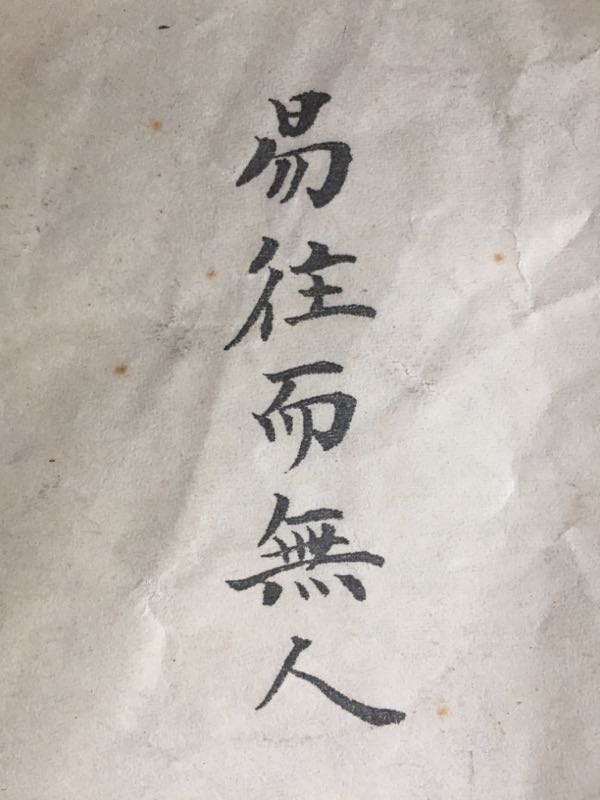 易往而無人